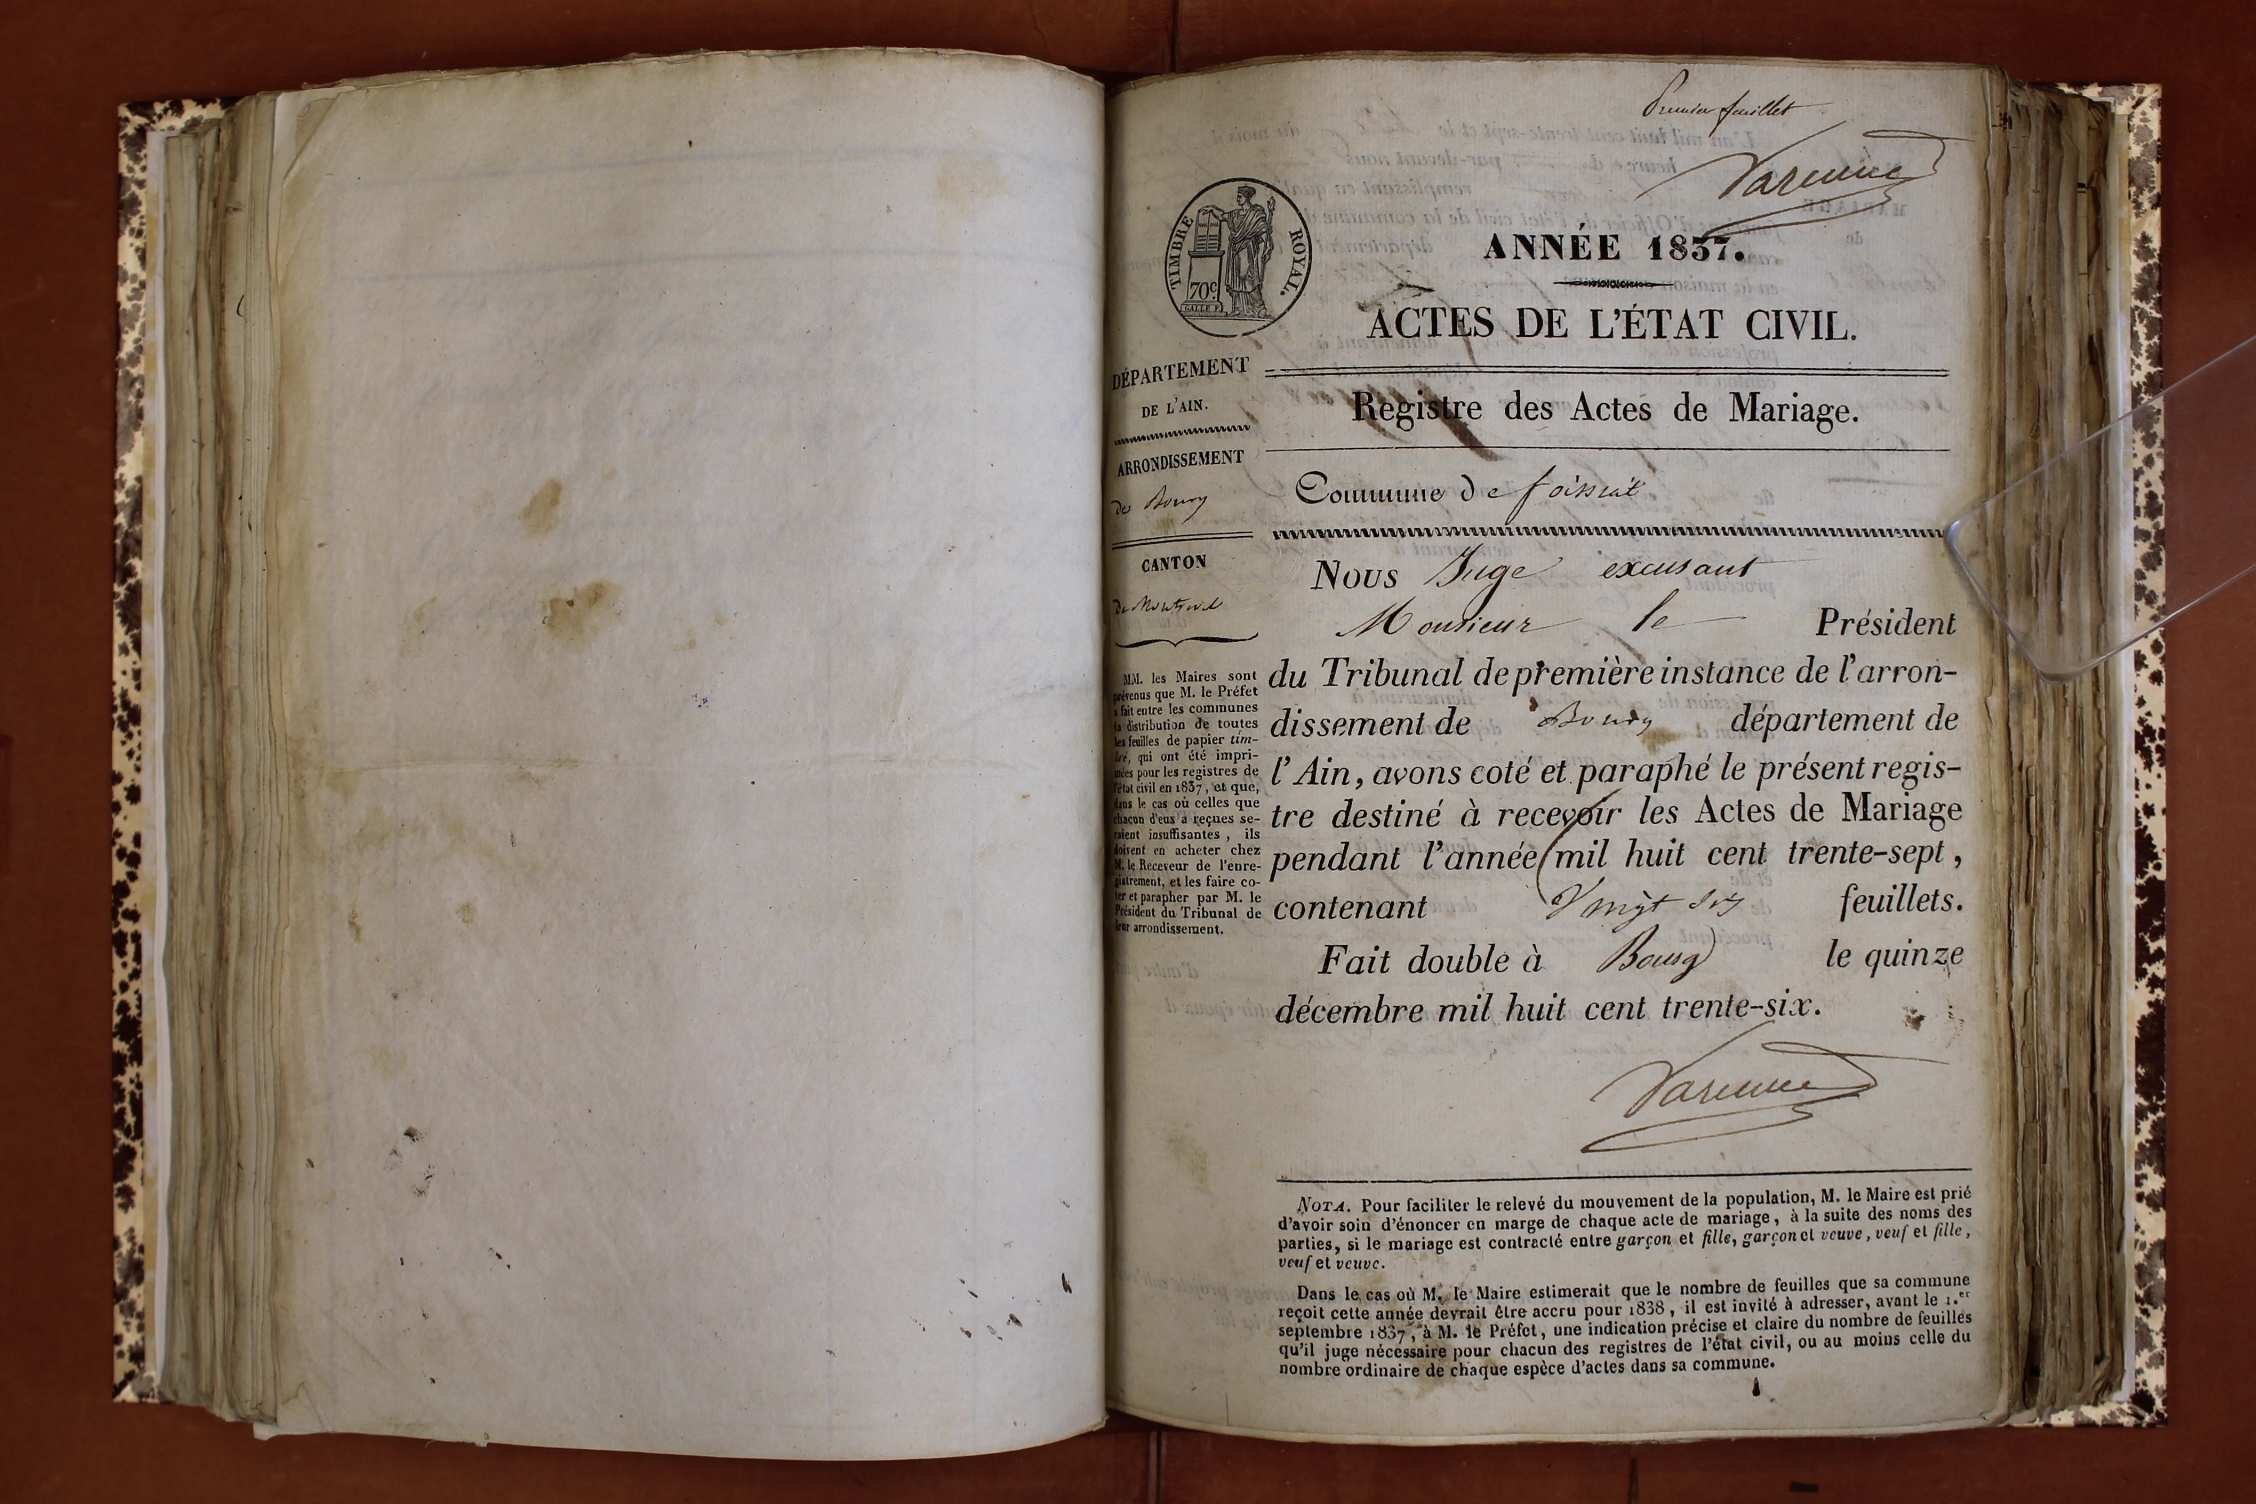 Premier feuillet
Varenne
TIMBRE ROYAL.
70c.
GALLE F.
ANNÉE 1837.
ACTES DE L'ÉTAT CIVIL.
DÉPARTEMENT
DE L'AIN.
Registre des Actes de Mariage.
ARRONDISSEMENT
de Bourg
Commune de foissiat
CANTON
de Montrevel
Nous Juge excusant
Monsieur le Président
du Tribunal de première instance de l'arron-
dissement de Bourg département de
l'Ain, avons coté et paraphé le présent regis-
tre destiné à recevoir les Actes de Mariage
pendant l'année mil huit cent trente-sept,
contenant Vingt six feuillets.
Fait double à Bourg le quinze
décembre mil huit cent trente-six.
Varenne
MM. les Maires sont
prévenus que M. le Préfet
a fait entre les communes
la distribution de toutes
les feuilles de papier tim-
bré, qui ont été impri-
mées pour les registres de
l'état civil en 1837, et que,
dans le cas où celles que
chacun d'eux a reçues se-
raient insuffisantes, ils
doivent en acheter chez
M. le Receveur de l'enre-
gistrement, et les faire co-
ter et parapher par M. le
Président du Tribunal de
leur arrondissement.
NOTA. Pour faciliter le relevé du mouvement de la population, M. le Maire est prié
d'avoir soin d'énoncer en marge de chaque acte de mariage, à la suite des noms des
parties, si le mariage est contracté entre garçon et fille, garçon et veuve, veuf et fille,
veuf et veuve.
Dans le cas où M. le Maire estimerait que le nombre de feuilles que sa commune
reçoit cette année devrait être accru pour 1838, il est invité à adresser, avant le 1.er
septembre 1837, à M. le Préfet, une indication précise et claire du nombre de feuilles
qu'il juge nécessaire pour chacun des registres de l'état civil, ou au moins celle du
nombre ordinaire de chaque espèce d'actes dans sa commune.